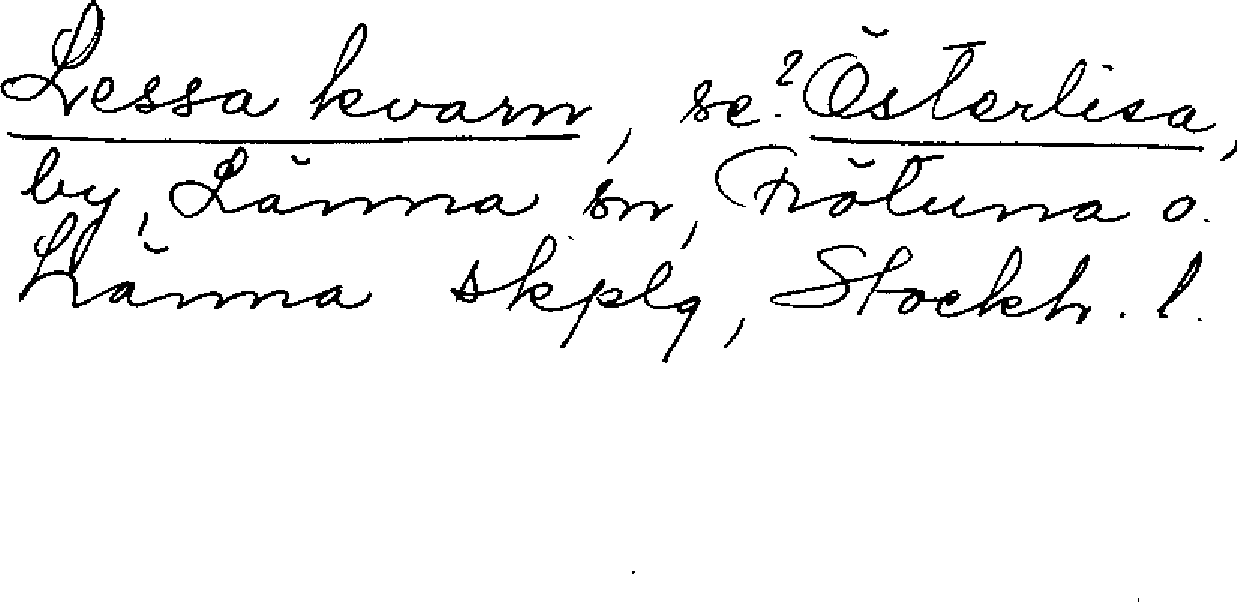 Lessa kvarn, se? Österlisa,
by, Länna sn, Frötuna o.
Länna skplg, Stockh. l.